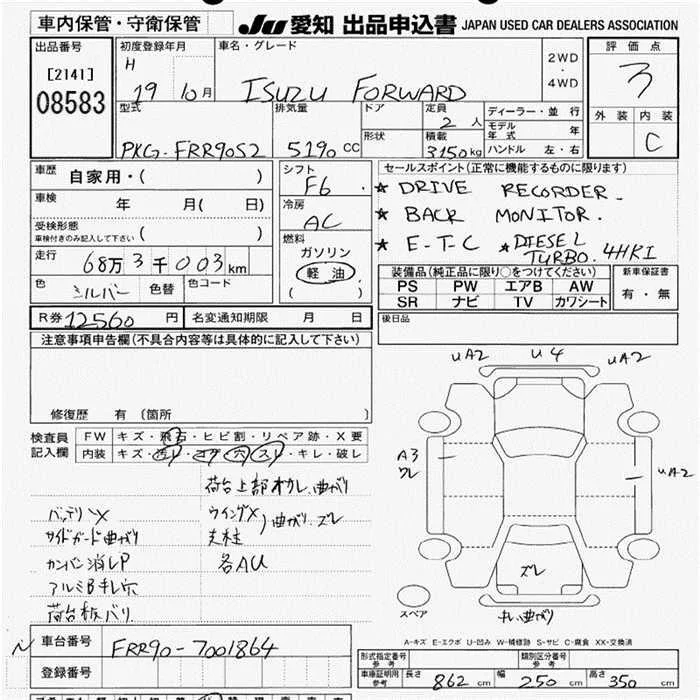 車内保管・守衛保管
JU 愛知 出品申込書 JAPAN USED CAR DEALERS ASSOCIATION
出品番号
[2141]
08583
初度登録年月
H
19 10月
車名・グレード
ISUZU FORWARD
2WD
・
4WD
評価点
3
外装 内装
C
型式
PKG-FRR90S2
排気量
5190 CC
ドア
形状
定員
2 人
積載
3150kg
ディーラー・並行
モデル年式 年
ハンドル 左・右
車歴 自家用・( )
車検 年 月( 日)
受検形態
車検付きのみ記入して下さい ( )
走行 68万3千003km
色 シルバー 色替 色コード
シフト
F6
冷房
AC
燃料
ガソリン
軽油
( )
セールスポイント(正常に機能するものに限ります)
★ DRIVE RECORDER.
★ BACK MONITOR.
★ E-T-C ★ DIESEL TURBO. 4HK1
装備品(純正品に限り○をつけてください)
PS PW エアB AW
SR ナビ TV カワシート
新車保証書
有・無
R券 12560 円 名変通知期限 月 日
後日品
注意事項申告欄(不具合内容等は具体的に記入して下さい)
修復歴 有 (箇所 )
検査員記入欄
FW キズ・飛石・ヒビ割・リペア跡・X要
内装 キズ・汚レ・コゲ・穴・スレ・キレ・破レ
荷台上部オカレ、曲がり
バッテリX
ウイングX
サイドガード曲がり
支柱
曲がり、ズレ
カンバン消しP
各AU
アルミBキレ穴
荷台板バリ
UA2 U4 UA2
A3
ワレ
UA2
ズレ
キレ曲がり
スペア
A-キズ E-エクボ U-凹み W-補修跡 S-サビ C-腐食 XX-交換済
N
車台番号 FRR90-7001864
登録番号
形式指定番号
参考
類別区分番号
参考
車庫証明用
参考
長さ 862 cm 幅 250 cm 高さ 350 cm